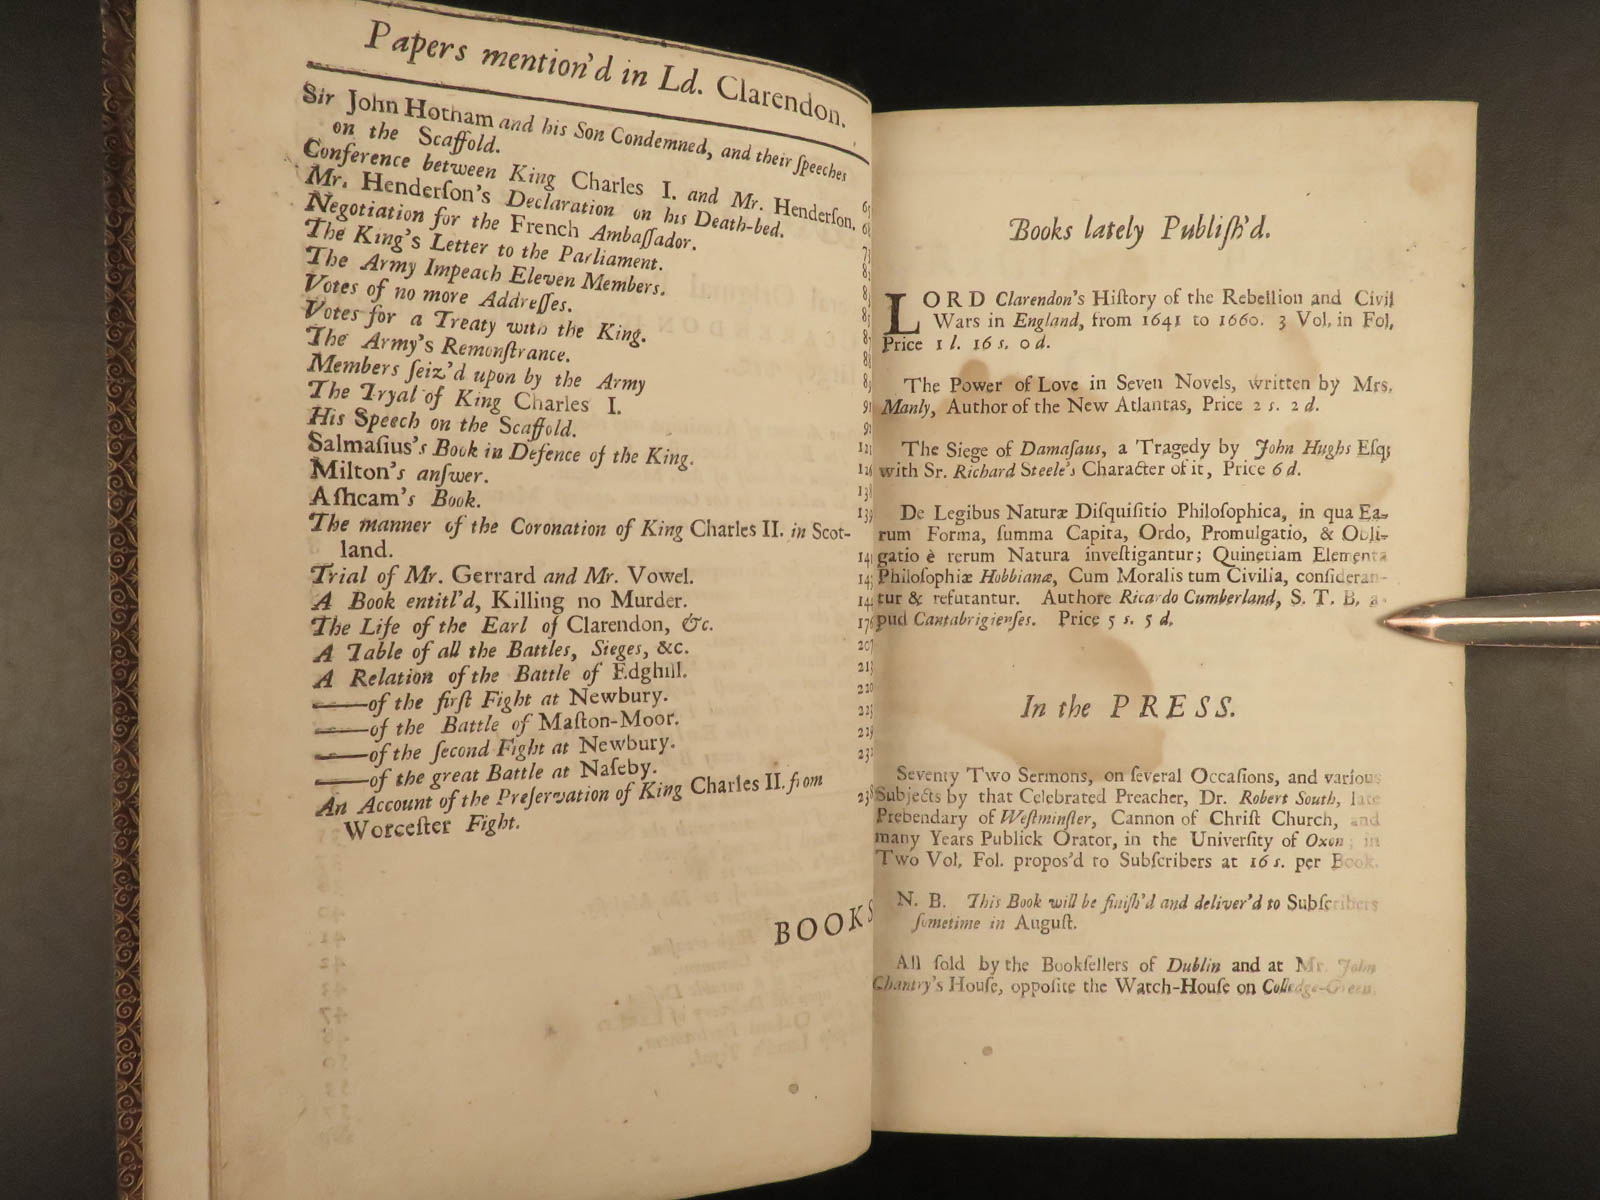 Papers mention'd in Ld. Clarendon.
Sir John Hotham and his Son Condemned, and their ſpeeches
on the Scaffold.
Conference between King Charles I. and Mr. Henderſon.
Mr. Henderſon's Declaration on his Death-bed. 68
Negotiation for the French Ambaſſador. 73
The King's Letter to the Parliament.
The Army Impeach Eleven Members.
Votes of no more Addreſſes.
Votes for a Treaty with the King.
The Army's Remonſtrance.
Members ſeiz'd upon by the Army
The Tryal of King Charles I. 91
His Speech on the Scaffold.
Salmaſius's Book in Defence of the King. 121
Milton's anſwer. 126
Aſhcam's Book. 138
The manner of the Coronation of King Charles II. in Scot- 139
land.
Trial of Mr. Gerrard and Mr. Vowel. 143
A Book entitl'd, Killing no Murder. 144
The Life of the Earl of Clarendon, &c. 176
A Table of all the Battles, Sieges, &c. 207
A Relation of the Battle of Edghill. 213
——of the firſt Fight at Newbury. 220
——of the Battle of Maſton-Moor. 223
——of the ſecond Fight at Newbury. 229
——of the great Battle at Naſeby. 232
An Account of the Preſervation of King Charles II. from
Worceſter Fight. 238
BOOKS
Books lately Publiſh'd.
LORD Clarendon's Hiſtory of the Rebellion and Civil
Wars in England, from 1641 to 1660. 3 Vol. in Fol,
Price 1 l. 16 s. 0 d.
The Power of Love in Seven Novels, written by Mrs.
Manly, Author of the New Atlantas, Price 2 s. 2 d.
The Siege of Damaſaus, a Tragedy by John Hughs Eſq;
with Sr. Richard Steele's Character of it, Price 6 d.
De Legibus Naturæ Diſquiſitio Philoſophica, in qua Ea-
rum Forma, ſumma Capita, Ordo, Promulgatio, & Obli-
gatio è rerum Natura inveſtigantur; Quinetiam Elementa
Philoſophiæ Hobbianæ, Cum Moralis tum Civilia, conſideran-
tur & refutantur. Authore Ricardo Cumberland, S. T. B. a-
pud Cantabrigienſes. Price 5 s. 5 d.
In the PRESS.
Seventy Two Sermons, on ſeveral Occaſions, and various
Subjects by that Celebrated Preacher, Dr. Robert South, late
Prebendary of Weſtminſter, Cannon of Chriſt Church, and
many Years Publick Orator, in the Univerſity of Oxon; in
Two Vol. Fol. propos'd to Subſcribers at 16 s. per Book.
N. B. This Book will be finiſh'd and deliver'd to Subſcribers
ſometime in Auguſt.
All ſold by the Bookſellers of Dublin and at Mr. John
Chantry's Houſe, oppoſite the Watch-Houſe on Colledge-Green.